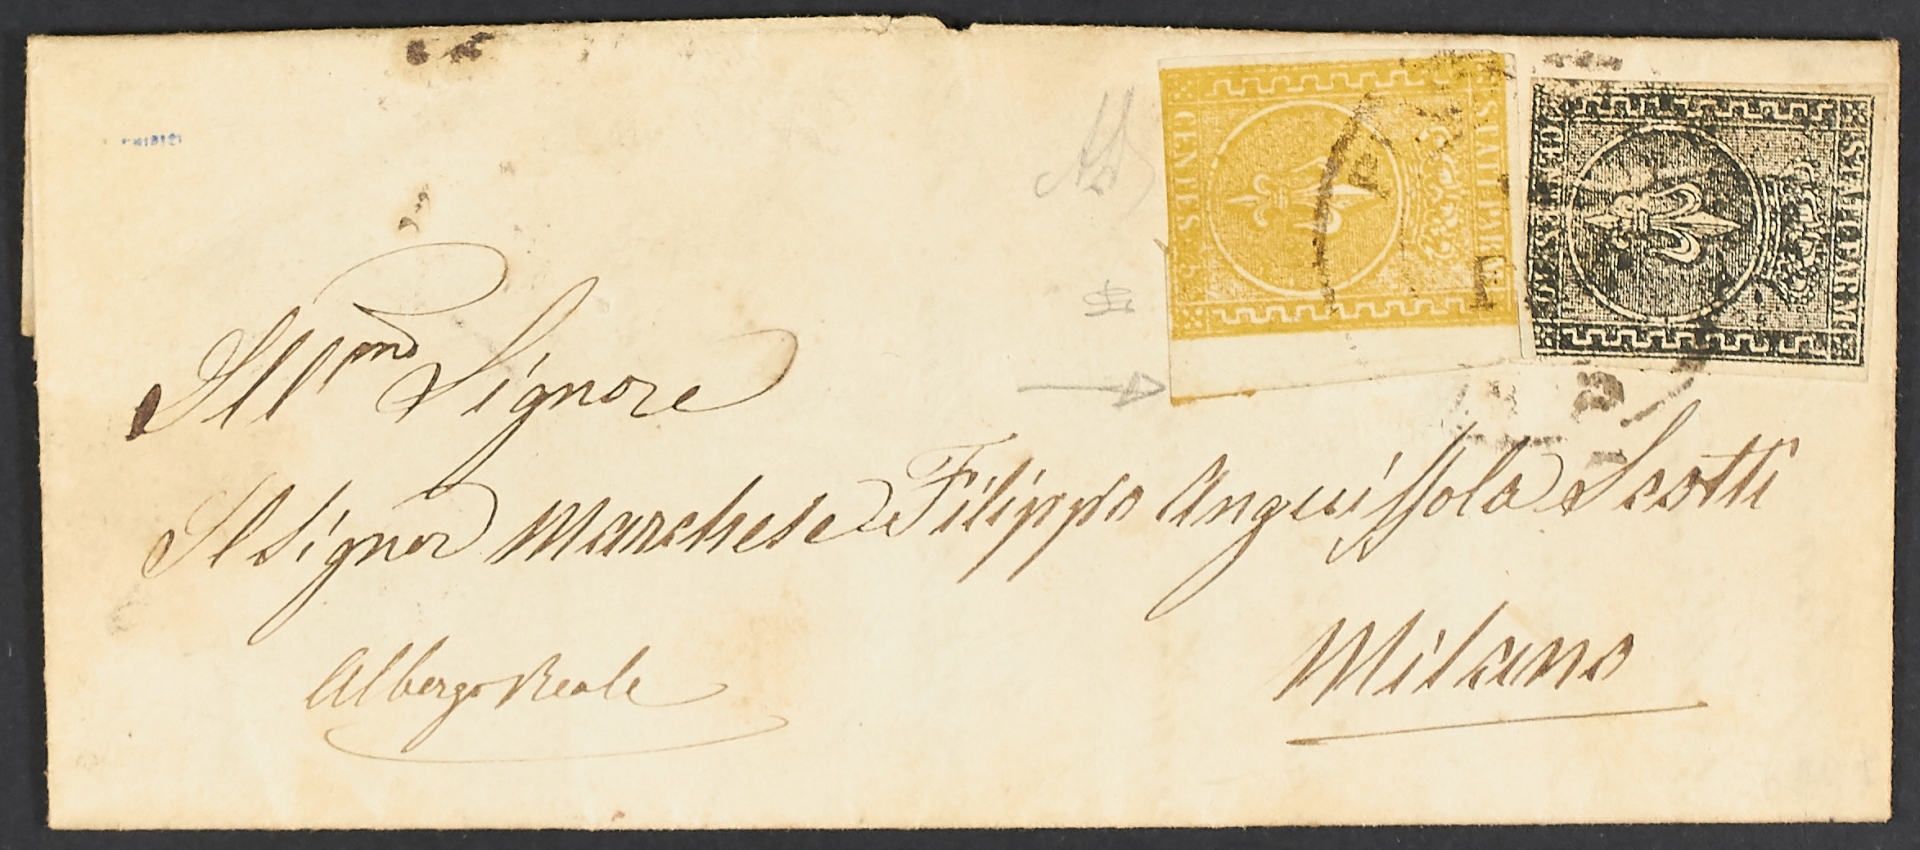 STATI PARM.
CENTES. 5
STATI PARM.
CENTES. 10
Ill.mo Signore
Il Signor Marchese Filippo Anguissola Scotti
Milano
Albergo Reale